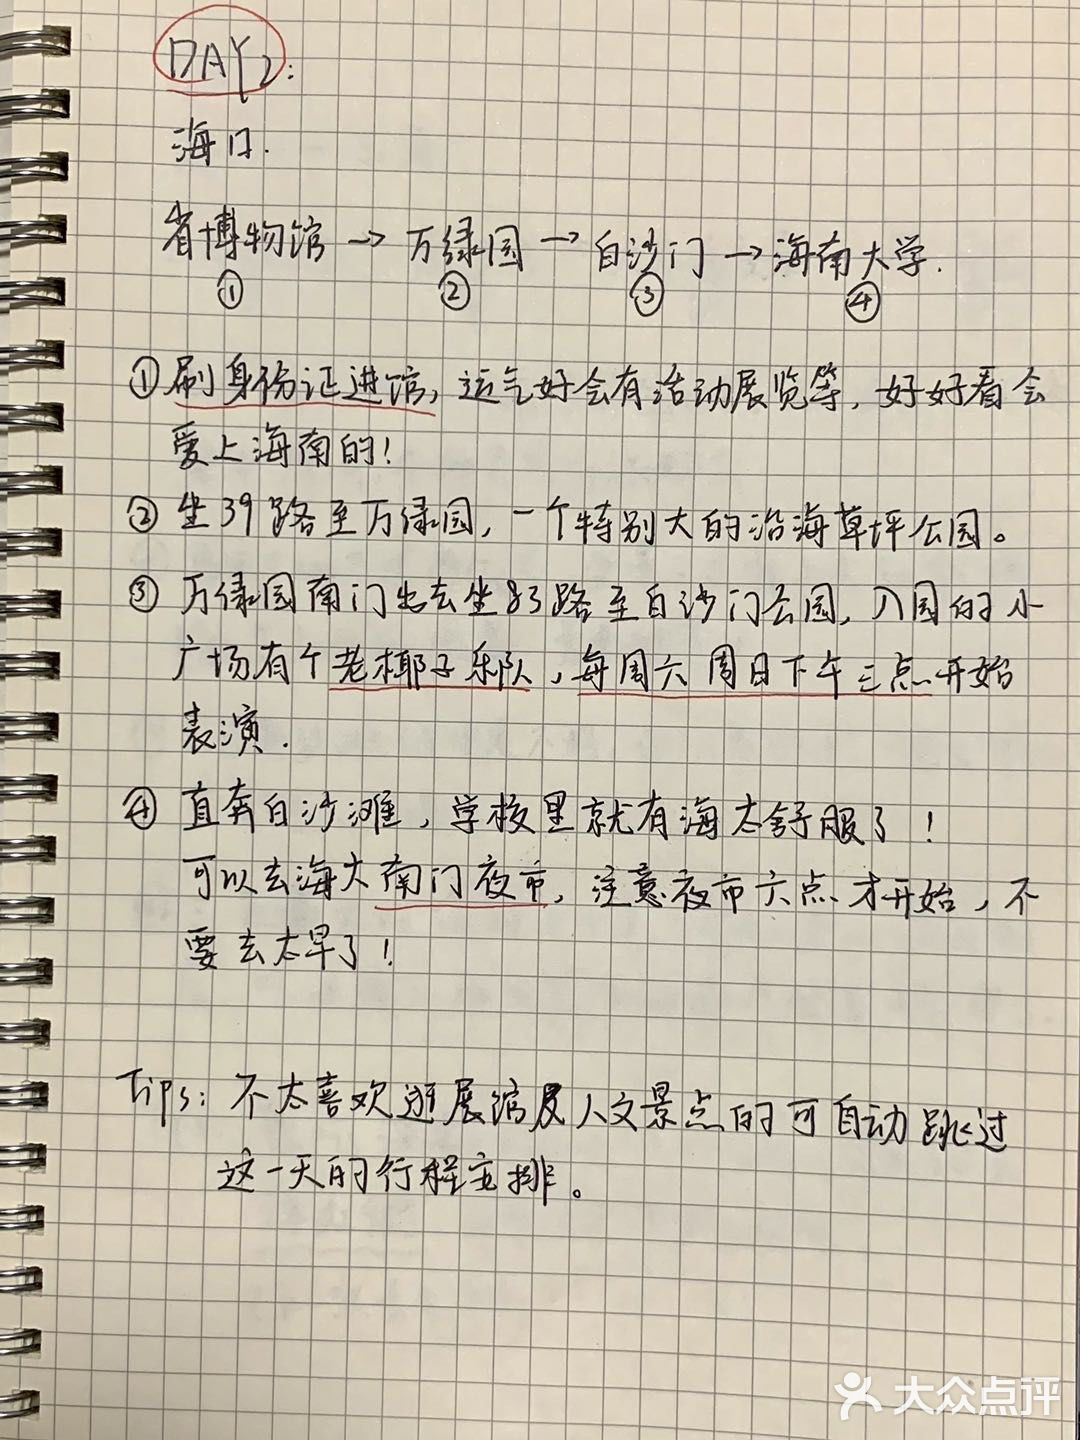 DAY2:
海口.
省博物馆→万绿园→白沙门→海南大学.
① ② ③ ④
①刷身份证进馆，运气好会有活动展览等，好好看会
爱上海南的！
②坐39路至万绿园，一个特别大的沿海草坪公园。
③万绿园南门出去坐83路至白沙门公园，入园的小
广场有个老椰子乐队，每周六周日下午三点开始
表演.
④直奔白沙滩，学校里就有海太舒服了！
可以去海大南门夜市，注意夜市六点才开始，不
要去太早了！
Tips：不太喜欢逛展馆及人文景点的可自动跳过
这一天的行程安排。
大众点评